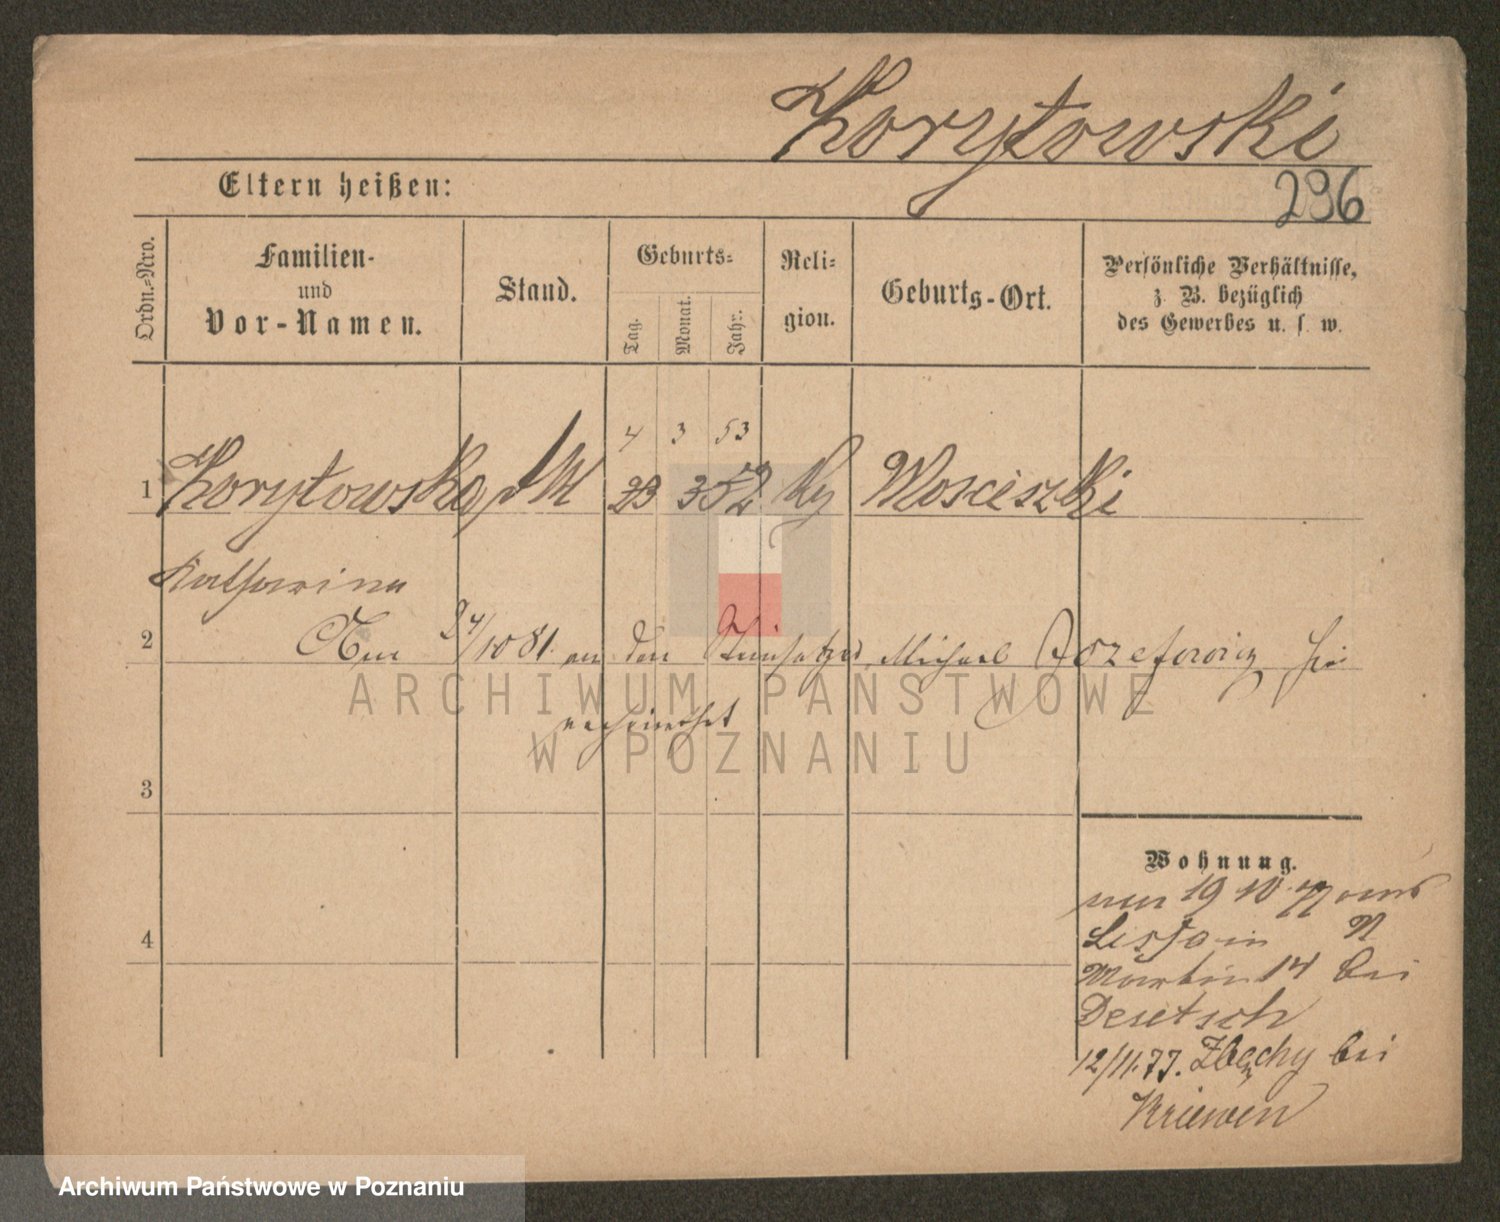 Korytowski
Eltern heißen:
296
Ordn.-Nro.
Familien-
und
Vor-Namen.
Stand.
Geburts-
Tag.
Monat.
Jahr.
Reli-
gion.
Geburts-Ort.
Persönliche Verhältnisse,
z. B. bezüglich
des Gewerbes u. s. w.
4 3 53
1 Korytowska, 23 3 52 Mosciszki
Katharina
2 Am 24/10 81. an den Michael Jozefowicz hier
verheirathet
3
Wohnung.
von 19 10 77 aus
Lissa in
4
Martin 14 bei
Desetsch
12/11.77. Zbechy bei
Kriewen
ARCHIWUM PAŃSTWOWE
W POZNANIU
Archiwum Państwowe w Poznaniu